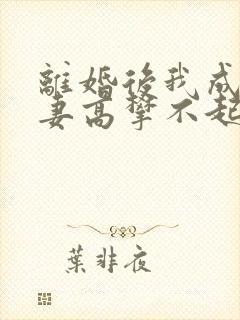 離婚後我成
妻高攀不起
葉非夜